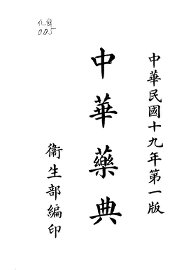 005
中華民國十九年第一版
中華藥典
衞生部編印